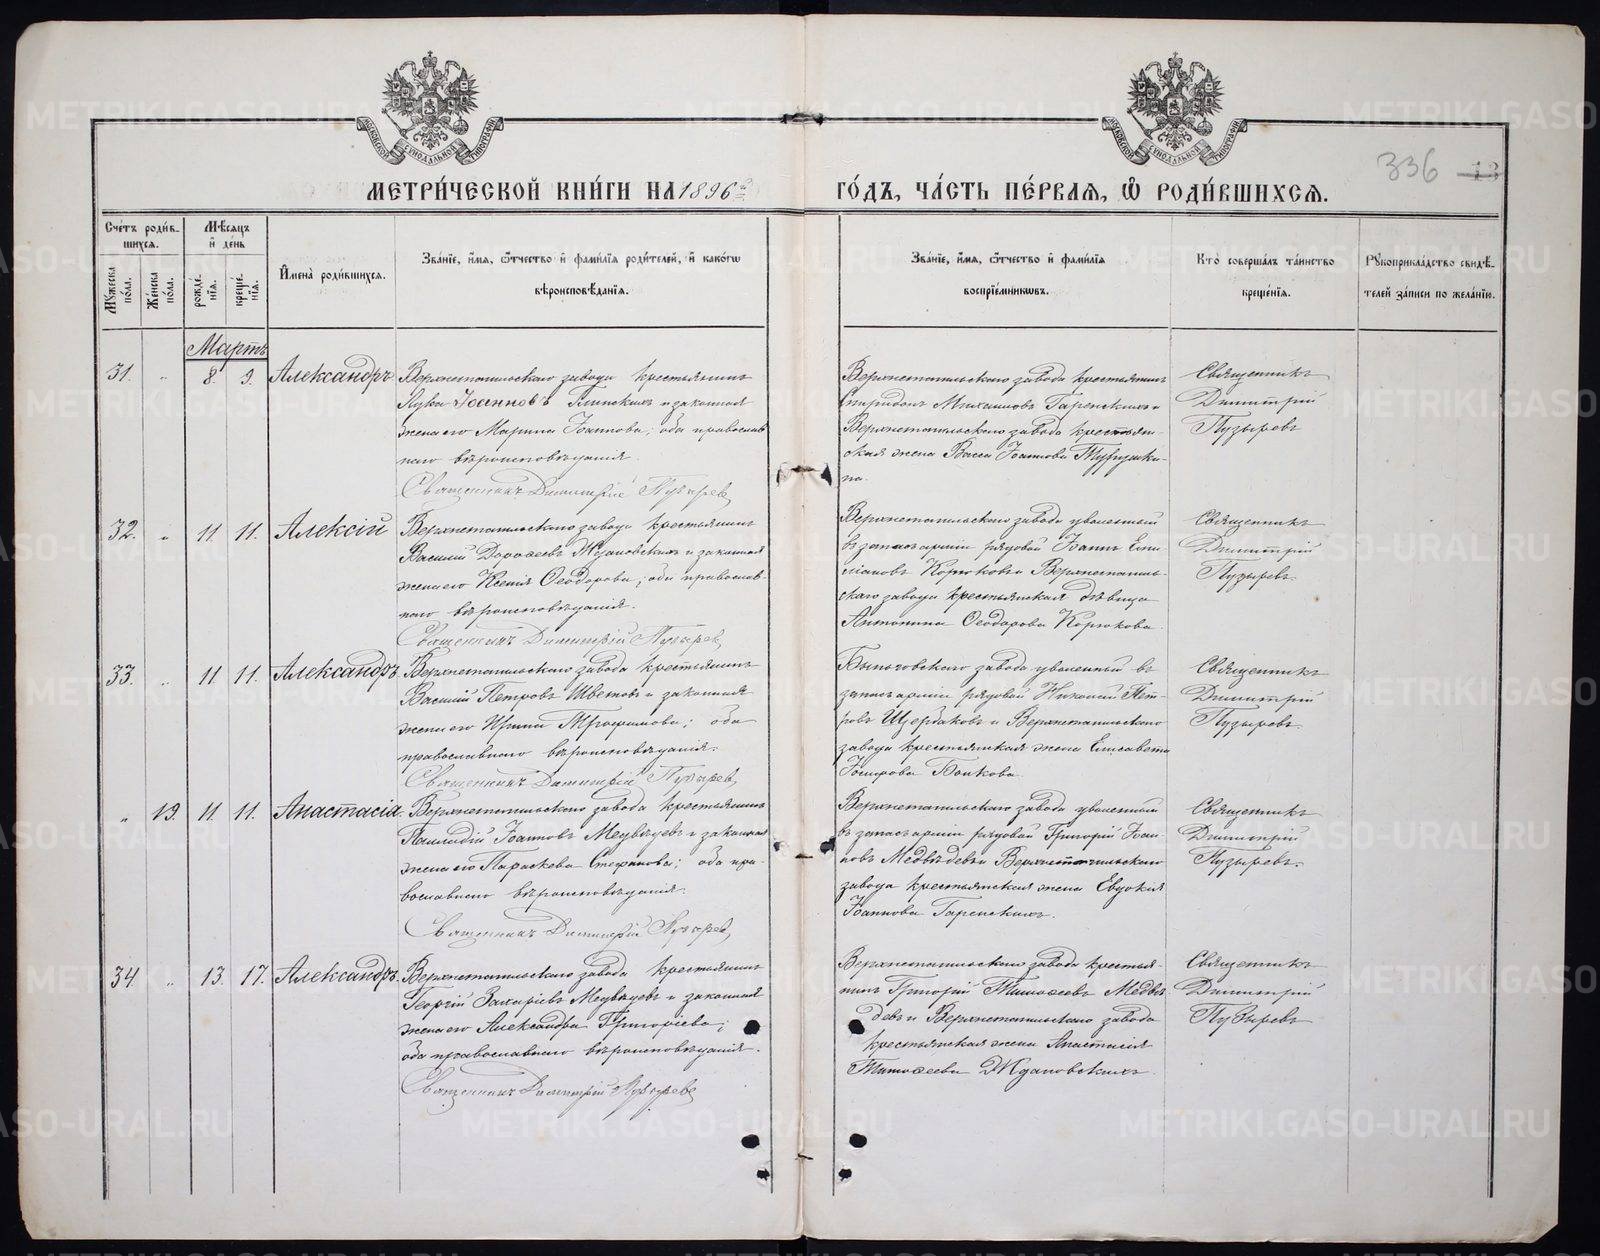 МОСКОВСКОЙ СѴНОДАЛЬНОЙ ТИПОГРАФІИ
МОСКОВСКОЙ СѴНОДАЛЬНОЙ ТИПОГРАФІИ
336 13
МЕТРИ́ЧЕСКОЙ КНИ́ГИ НА 1896й ГО́ДЪ, ЧА́СТЬ ПЕ́РВАЯ, Ѡ РОДИ́ВШИХСЯ.
Сче́тъ роди́в-
шихся.
Му́жеска по́ла.
Же́нска по́ла.
Мѣ́сяцъ
и де́нь
рожде́-
нїя.
креще́-
нїя.
Имена̀ роди́вшихся.
Зва́нїе, и́мя, ѻ́тчество и фами́лїя роди́телей, и како́гѡ
вѣроисповѣ́данїя.
Зва́нїе, и́мя, ѻ́тчество и фами́лїя
воспрїе́мникѡвъ.
Кто̀ соверша́лъ та́инство
креще́нїя.
Рꙋкоприкла́дство свидѣ́-
телей за́писи по жела́нїю.
Мартъ
31. " 8. 9. Александръ
Верхнетагильскаго завода крестьянинъ
Лука Іоанновъ Глинскихъ и законная
жена его Марина Іоаннова; оба православ
наго вѣроисповѣданія.
Священникъ Димитрій Пузыревъ
Верхнетагильскаго завода крестьянинъ
Спиридонъ Михаиловъ Гаренскихъ и
Верхнетагильскаго завода крестьян-
ская жена Васса Іоаннова
на.
Священникъ
Димитрій
Пузыревъ
32. " 11. 11. Алексій
Верхнетагильскаго завода крестьянинъ
Василій Дороѳеевъ Ждановскихъ и законная
жена его Ксенія Ѳеодорова; оба православ-
наго вѣроисповѣданія.
Священникъ Димитрій Пузыревъ
Верхнетагильскаго завода уволенный
въ запасъ арміи рядовой Іоаннъ Еми-
ліановъ Корюковъ и Верхнетагиль-
скаго завода крестьянская дѣвица
Антонина Ѳеодорова Корюкова.
Священникъ
Димитрій
Пузыревъ.
33. " 11 11. Александръ.
Верхнетагильскаго завода крестьянинъ
Василій Петровъ Швецовъ и законная
жена его Ирина Трофимова; оба
православнаго вѣроисповѣданія.
Священникъ Димитрій Пузыревъ
Быньговскаго завода уволенный въ
запасъ арміи рядовой Николай Пет-
ровъ Щербаковъ и Верхнетагильскаго
завода крестьянская жена Елисавета
Іосифова Бойкова.
Священникъ
Димитрій
Пузыревъ.
" 19. 11. 11. Анастасія.
Верхнетагильскаго завода крестьянинъ
Палладій Іоанновъ Медвѣдевъ и законная
жена его Параскева Стефанова; оба пра-
вославнаго вѣроисповѣданія.
Священникъ Димитрій Пузыревъ
Верхнетагильскаго завода уволенный
въ запасъ арміи рядовой Григорій Іоан-
новъ Медвѣдевъ и Верхнетагильскаго
завода крестьянская жена Евдокія
Іоаннова Гаренскихъ.
Священникъ
Димитрій
Пузыревъ.
34 " 13. 17. Александръ.
Верхнетагильскаго завода крестьянинъ
Георгій Захаріевъ Медвѣдевъ и законная
жена его Александра Григоріева;
оба православнаго вѣроисповѣданія.
Священникъ Димитрій Пузыревъ
Верхнетагильскаго завода крестья-
нинъ Григорій Тимоѳеевъ Медвѣ-
девъ и Верхнетагильскаго завода
крестьянская жена Анастасія
Тимоѳеева Ждановскихъ.
Священникъ
Димитрій
Пузыревъ
METRIKI.GASO-URAL.RU